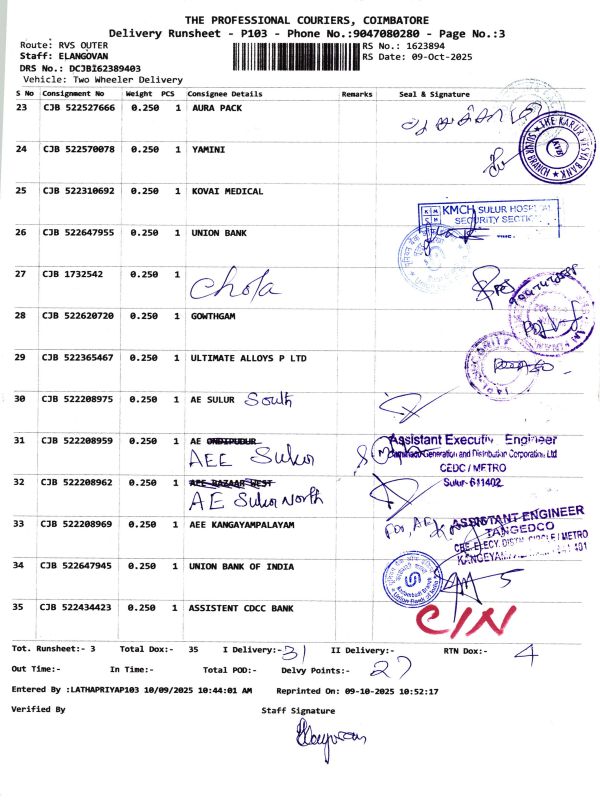 THE PROFESSIONAL COURIERS, COIMBATORE
Delivery Runsheet - P103 - Phone No.:9047080280 - Page No.:3
Route: RVS OUTER RS No.: 1623894
Staff: ELANGOVAN RS Date: 09-Oct-2025
DRS No.: DCJBI62389403
Vehicle: Two Wheeler Delivery
S No Consignment No Weight PCS Consignee Details Remarks Seal & Signature
23 CJB 522527666 0.250 1 AURA PACK
THE KARUR VYSYA BANK
SULUR BRANCH
24 CJB 522570078 0.250 1 YAMINI
25 CJB 522310692 0.250 1 KOVAI MEDICAL
KMCH SULUR HOSPITAL
SECURITY SECTION
26 CJB 522647955 0.250 1 UNION BANK
27 CJB 1732542 0.250 1 Chola
28 CJB 522620720 0.250 1 GOWTHGAM
29 CJB 522365467 0.250 1 ULTIMATE ALLOYS P LTD
30 CJB 522208975 0.250 1 AE SULUR South
31 CJB 522208959 0.250 1 AE ONDIPUDUR
AEE Sulur
Assistant Executiv Engineer
Generation and Distribution Corporation Ltd
CEDC / METRO
Sulur- 611402
32 CJB 522208962 0.250 1 AEE BAZAAR WEST
AE Sulur North
33 CJB 522208969 0.250 1 AEE KANGAYAMPALAYAM
For, AE
ASSISTANT ENGINEER
TANGEDCO
CBE. ELECY. DISTN. CIRCLE / METRO
34 CJB 522647945 0.250 1 UNION BANK OF INDIA
Union Bank of India
35 CJB 522434423 0.250 1 ASSISTENT CDCC BANK
C/N
Tot. Runsheet:- 3 Total Dox:- 35 I Delivery:- 31 II Delivery:- RTN Dox:- 4
Out Time:- In Time:- Total POD:- Delvy Points:- 27
Entered By :LATHAPRIYAP103 10/09/2025 10:44:01 AM Reprinted On: 09-10-2025 10:52:17
Verified By Staff Signature